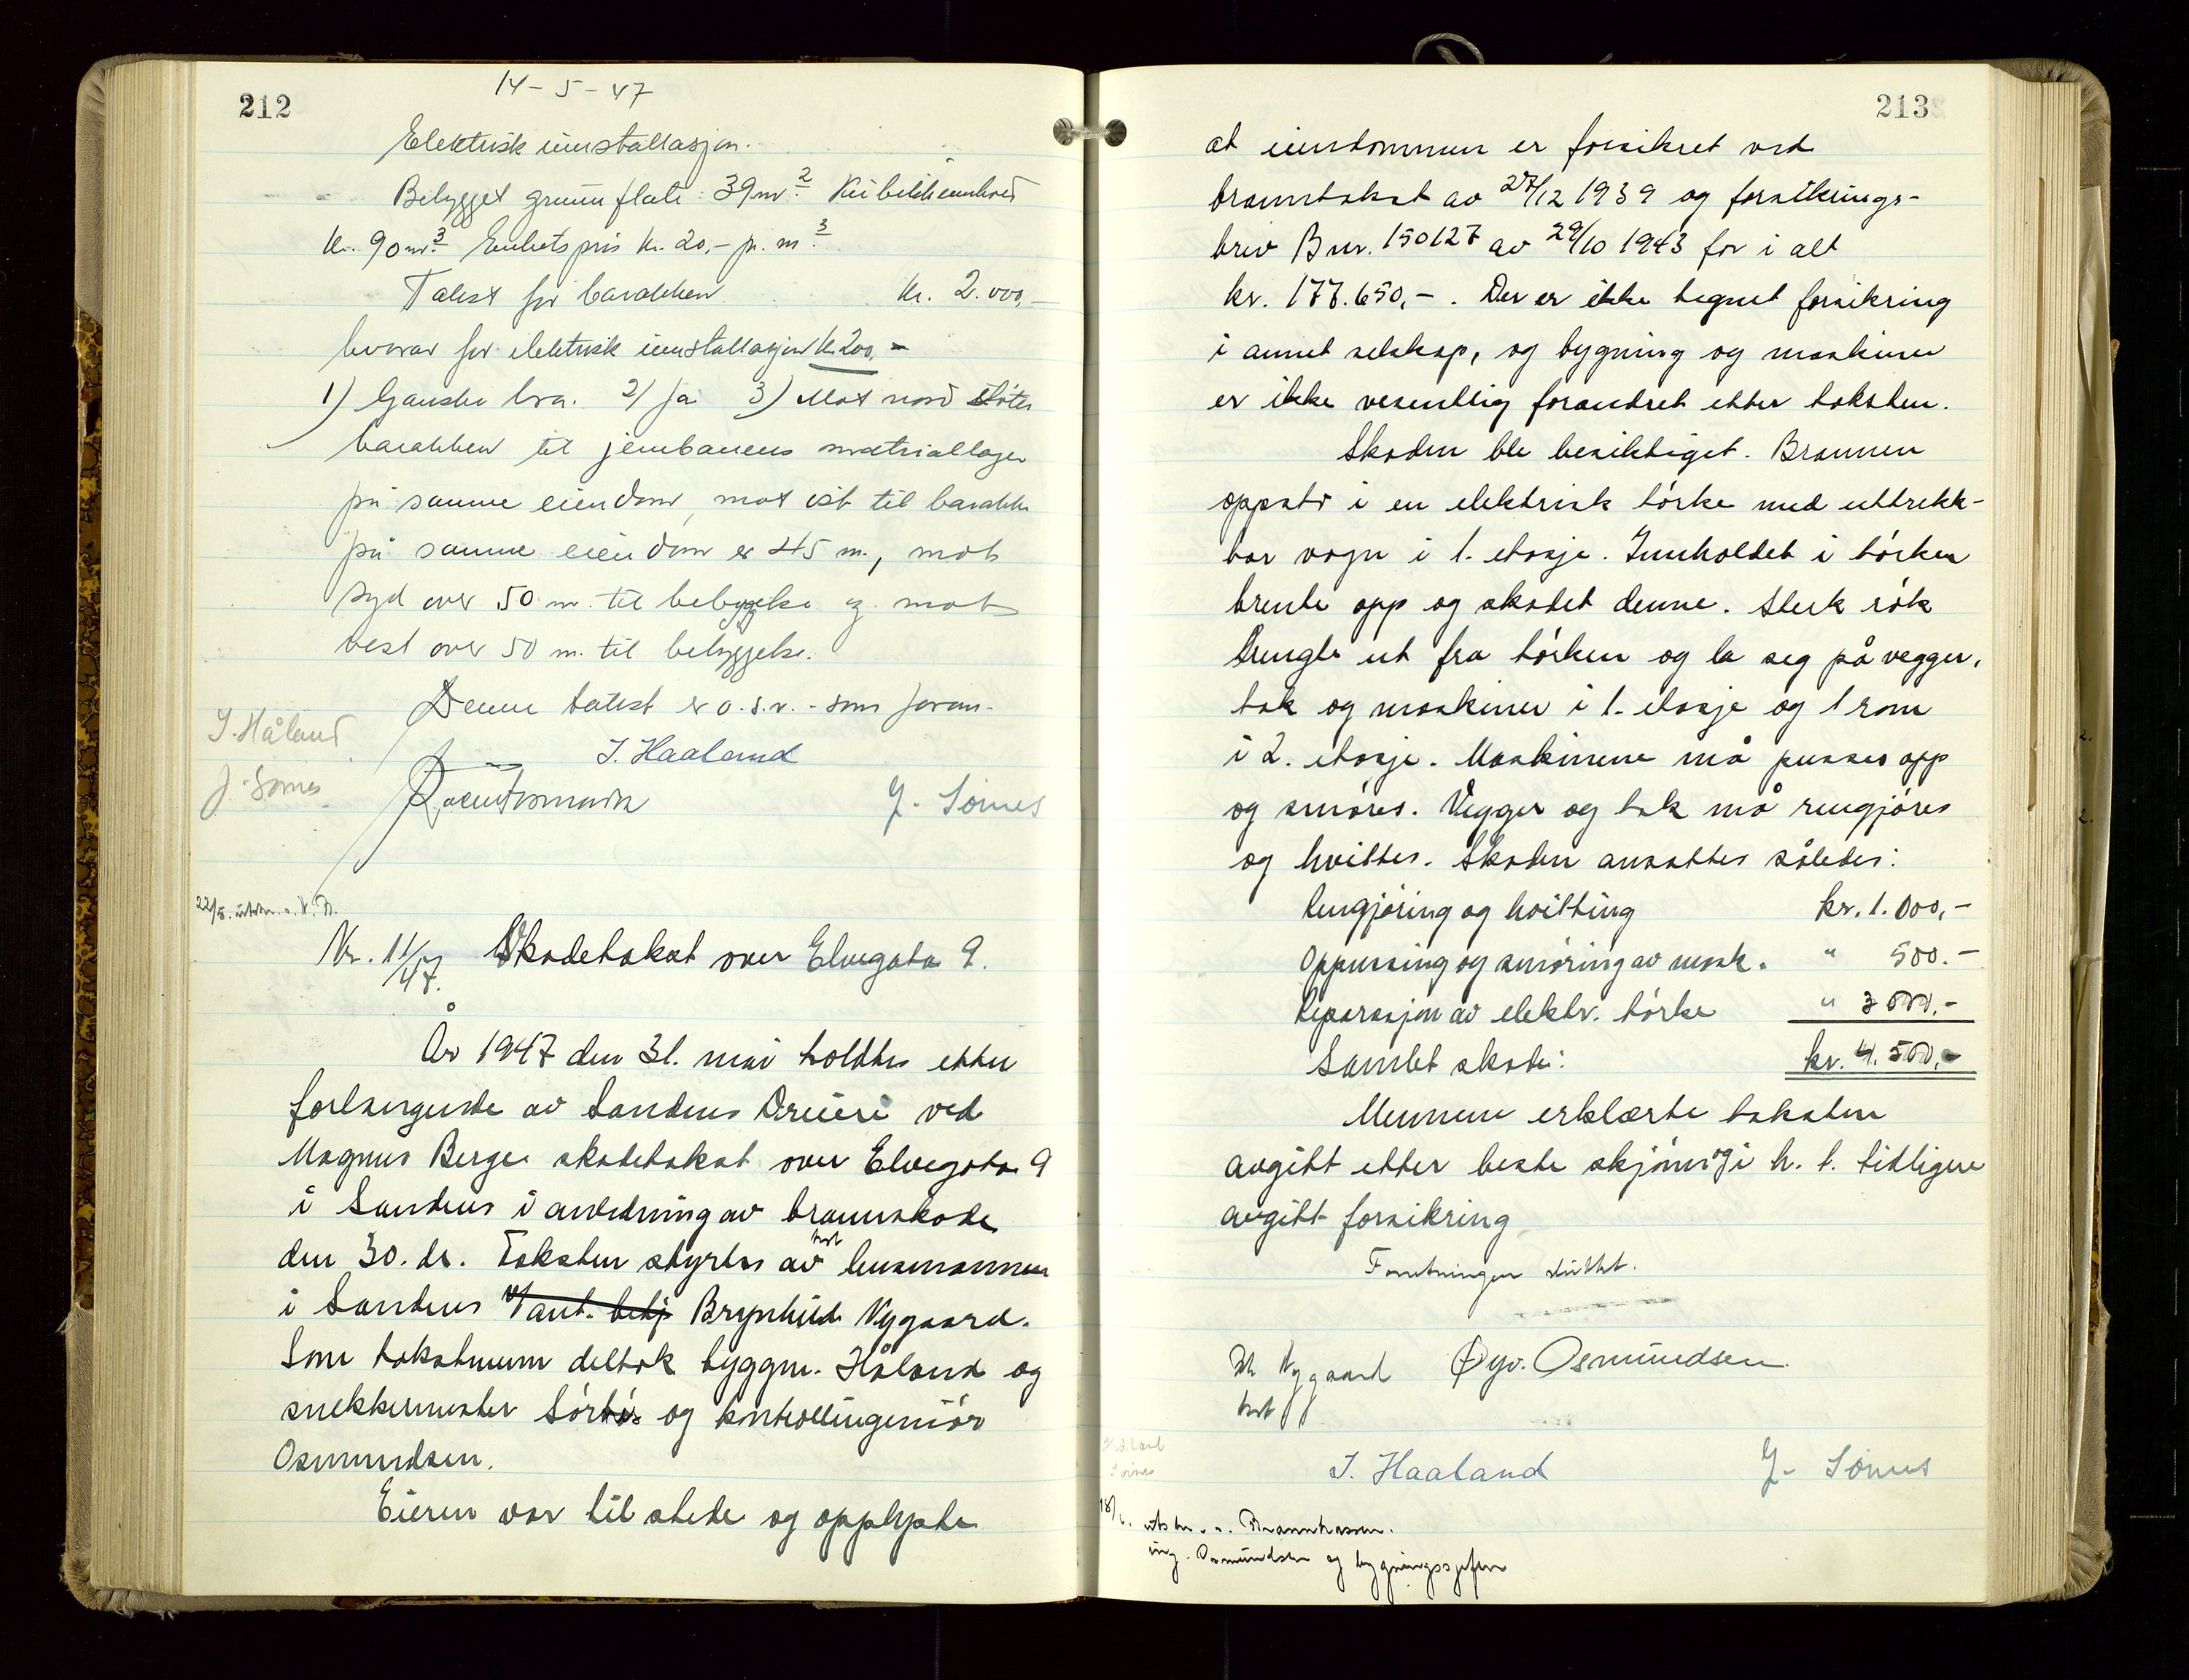 212
14-5-47
Elektrisk innstallasjon.
Bebygget grunnflate: 39 m² Kubikkinnhold
Kr. 90 m³ Enhetspris kr. 20,- pr. m³
Takst for barakken kr. 2.000,-
hvorav for elektrisk innstallasjon kr. 200,-
1) Ganske bra. 2) Ja 3) Mot nord støter
barakken til jernbanens matriallager
på samme eiendom, mot øst til barakke
på samme eiendom er 45 m., mot
syd over 50 m. til bebyggelse og mot
vest over 50 m. til bebyggelse.
Denne takst er o.s.v. - som foran.-
I. Håland
I. Haaland
J. Sørnes
J. Sørnes
22/5. utskr. a. V. B.
Nr. 11/47. Skadetakst over Elvegata 9.
År 1947 den 31. mai holdtes etter
forlangende av Sandnes Dreieri ved
Magnus Berge skadetakst over Elvegata 9
i Sandnes i anledning av brannskade
den 30. ds. Taksten styrtes av kst lensmannen
i Sandnes v/ aut. betj Brynhild Nygaard.
Som takstmenn deltok byggm. Håland og
snekkermester Sørbøs og kontrollingeniør
Osmundsen.
Eieren var til stede og opplyste
213
at eiendommen er forsikret ved
branntakst av 27/12 1939 og forsikrings-
brev B nr. 150127 av 29/10 1943 for i alt
kr. 177.650,-. Der er ikke tegnet forsikring
i annet selskap, og bygning og maskiner
er ikke vesentlig forandret etter taksten.
Skaden ble besiktiget. Brannen
oppsto i en elektrisk tørke med uttrekk-
bar vogn i 1. etasje. Innholdet i tørken
brente opp og skadet denne. Sterk røk
trengte ut fra tørken og la seg på vegger,
tak og maskiner i 1. etasje og 1 rom
i 2. etasje. Maskinene må pusses opp
og smøres. Vegger og tak må rengjøres
og hvittes. Skaden ansattes således:
Rengjøring og hvitting kr. 1.000,-
Oppussing og smøring av mask. " 500.-
Reparasjon av elektr. tørke " 3000,-
Samlet skade: kr. 4.500,-
Mennene erklærte taksten
avgitt etter beste skjønn og i h. t. tidligere
avgitt forsikring
Forretningen sluttet.
Br Nygaard Øyv. Osmundsen.
kst
Håland
Sørnes
I. Haaland J. Sørnes
18/6. utskr. a. Brannkassen.
ing. Osmundsen og bygningssjefen